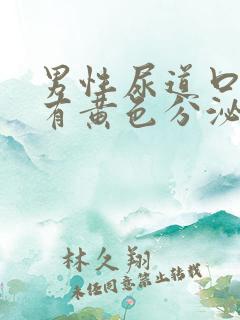 男性尿道口
有黄色分泌
林久翔
未经同意禁止转载